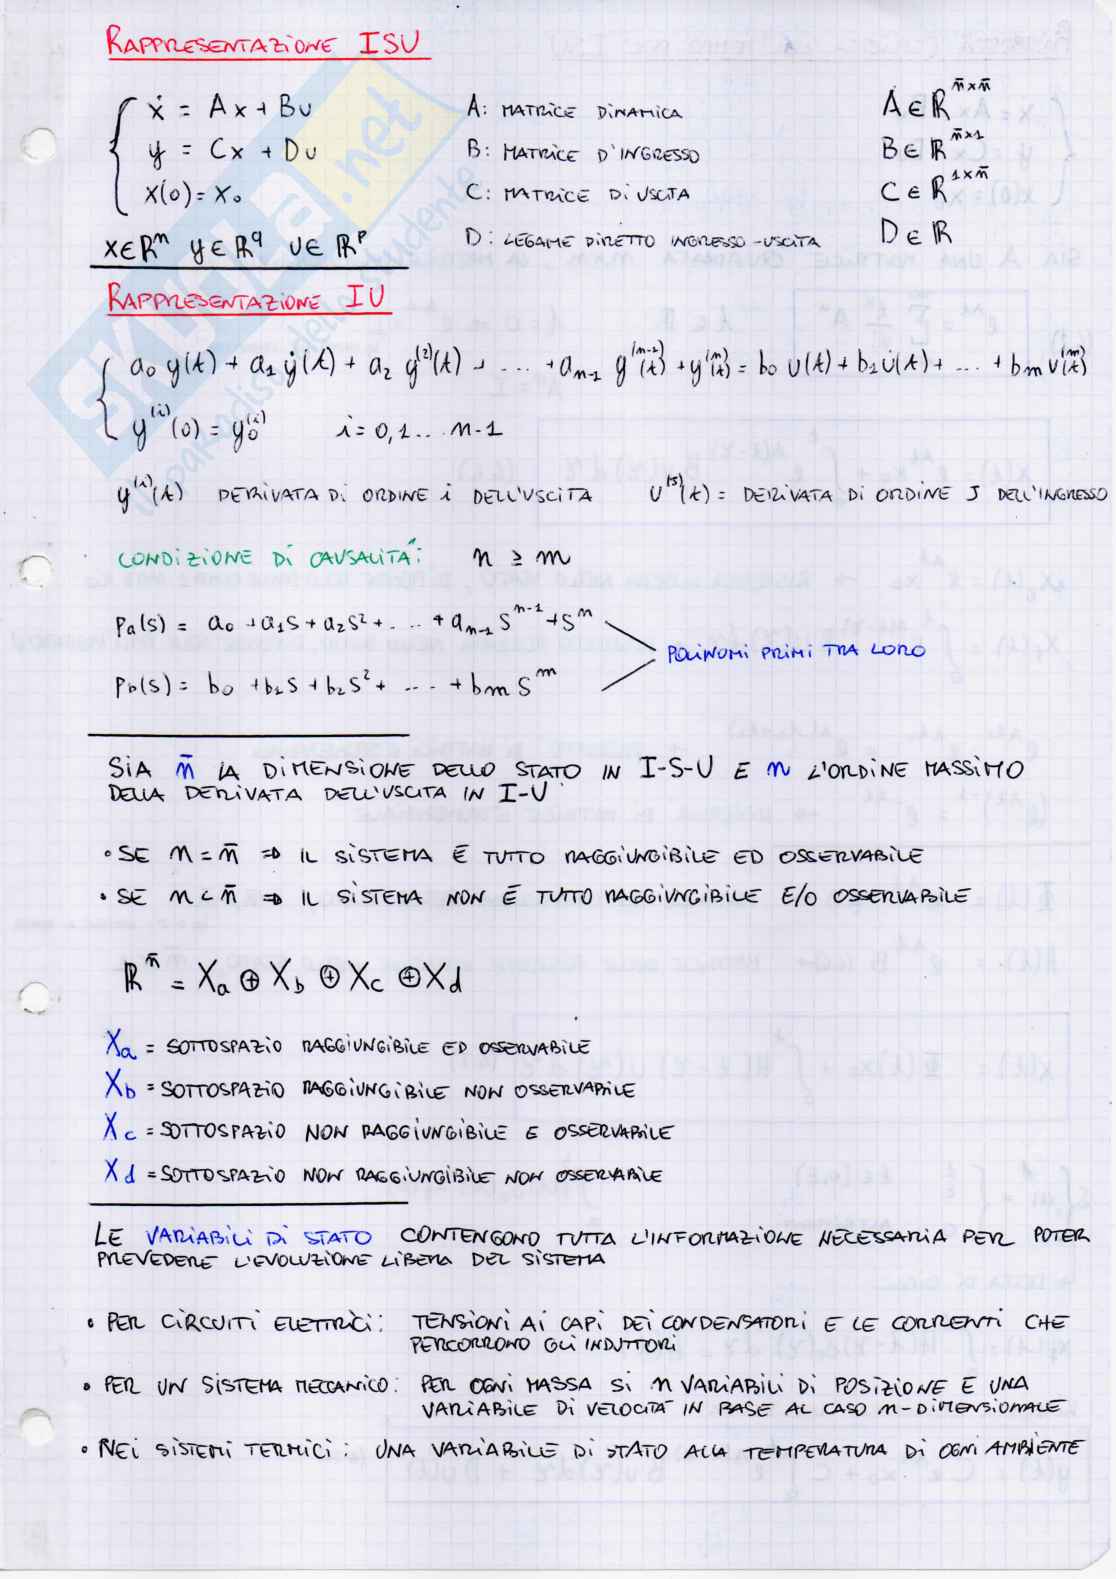 RAPPRESENTAZIONE ISU
ẋ = Ax + Bu
A: MATRICE DINAMICA
A ∈ ℝ^(n̄×n̄)
y = Cx + Du
B: MATRICE D'INGRESSO
B ∈ ℝ^(n̄×1)
x(0) = x₀
C: MATRICE DI USCITA
C ∈ ℝ^(1×n̄)
x∈ℝⁿ y∈ℝ^q u∈ℝ^p
D: LEGAME DIRETTO INGRESSO-USCITA
D ∈ ℝ
RAPPRESENTAZIONE IU
a₀ y(t) + a₁ ẏ(t) + a₂ y^(2)(t) + ... + a_(n-1) y^(n-1)(t) + y^(n)(t) = b₀ u(t) + b₁ u̇(t) + ... + b_m u^(m)(t)
y^(i)(0) = y₀^(i) i = 0,1... n-1
y^(i)(t) DERIVATA DI ORDINE i DELL'USCITA u^(J)(t) = DERIVATA DI ORDINE J DELL'INGRESSO
CONDIZIONE DI CAUSALITÀ: n ≥ m
Pa(s) = a₀ + a₁s + a₂s² + ... + a_(n-1) s^(n-1) + sⁿ
POLINOMI PRIMI TRA LORO
Pb(s) = b₀ + b₁s + b₂s² + ... + bm s^m
SIA n̄ LA DIMENSIONE DELLO STATO IN I-S-U E n L'ORDINE MASSIMO
DELLA DERIVATA DELL'USCITA IN I-U
• SE n = n̄ ⇒ IL SISTEMA È TUTTO RAGGIUNGIBILE ED OSSERVABILE
• SE n < n̄ ⇒ IL SISTEMA NON È TUTTO RAGGIUNGIBILE E/O OSSERVABILE
ℝ^n̄ = Xa ⊕ Xb ⊕ Xc ⊕ Xd
Xa = SOTTOSPAZIO RAGGIUNGIBILE ED OSSERVABILE
Xb = SOTTOSPAZIO RAGGIUNGIBILE NON OSSERVABILE
Xc = SOTTOSPAZIO NON RAGGIUNGIBILE E OSSERVABILE
Xd = SOTTOSPAZIO NON RAGGIUNGIBILE NON OSSERVABILE
LE VARIABILI DI STATO CONTENGONO TUTTA L'INFORMAZIONE NECESSARIA PER POTER
PREVEDERE L'EVOLUZIONE LIBERA DEL SISTEMA
• PER CIRCUITI ELETTRICI: TENSIONI AI CAPI DEI CONDENSATORI E LE CORRENTI CHE
PERCORRONO GLI INDUTTORI
• PER UN SISTEMA MECCANICO: PER OGNI MASSA SI n VARIABILI DI POSIZIONE E UNA
VARIABILE DI VELOCITÀ IN BASE AL CASO n-DIMENSIONALE
• NEI SISTEMI TERMICI: UNA VARIABILE DI STATO ALLA TEMPERATURA DI OGNI AMBIENTE